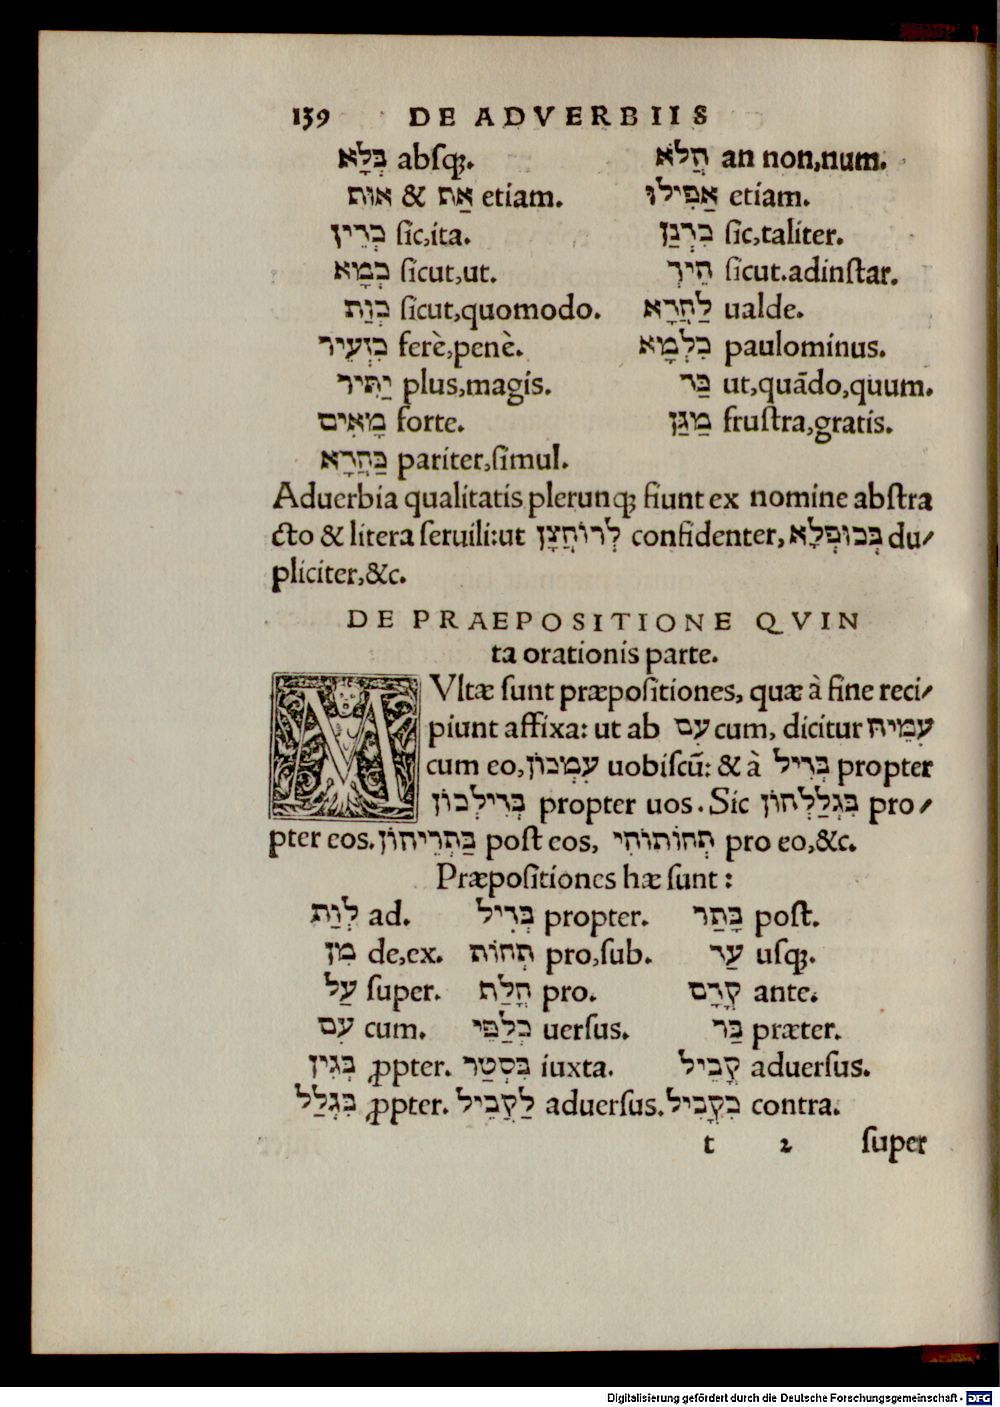 139 DE ADVERBIIS
בְּלָא absqꞗ. הֲלֹא an non,num.
אוּת & אַת etiam. אֲפִילוּ etiam.
כְּדֵין sic,ita. כִּדְנַן sic,taliter.
כְּמָא sicut,ut. הֵיךְ sicut.adinstar.
כְּוַת sicut,quomodo. לַחֲדָא ualde.
כִּזְעֵיר ferè,penè. כִּלְמָא paulominus.
יַתִּיר plus,magis. כַּד ut,quãdo,quum.
מָאִים forte. מַגַּן frustra,gratis.
כַּחֲדָא pariter,simul.
Aduerbia qualitatis plerunq; fiunt ex nomine abstra
cto & litera seruili:ut לְרוֹחֲצָן confidenter, בְּכוּפְלָא du/
pliciter,&c.
DE PRAEPOSITIONE QVIN
ta orationis parte.
MVltæ sunt præpositiones, quæ à fine reci/
piunt affixa: ut ab עִם cum, dicitur עִמֵּיהּ
cum eo, עִמְּכוֹן uobiscũ: & à בְּדִיל propter
בְּדִילְכוֹן propter uos. Sic בִּגְלַלְהוֹן pro/
pter eos. בַּתְרֵיהוֹן post eos, תְּחוֹתוֹהִי pro eo,&c.
Præpositiones hæ sunt:
לְוַת ad. בְּדִיל propter. בָּתַר post.
מִן de,ex. תְּחוֹת pro,sub. עַד usq;.
עַל super. חֲלַת pro. קֳדָם ante.
עִם cum. כְּלַפֵּי uersus. בַּר præter.
בְּגִין ꝓpter. בִּסְטַר iuxta. קֳבֵיל aduersus.
בִּגְלַל ꝓpter. לַקֳבֵיל aduersus. בִּקֳבִיל contra.
t 2 super
Digitalisierung gefördert durch die Deutsche Forschungsgemeinschaft - DFG